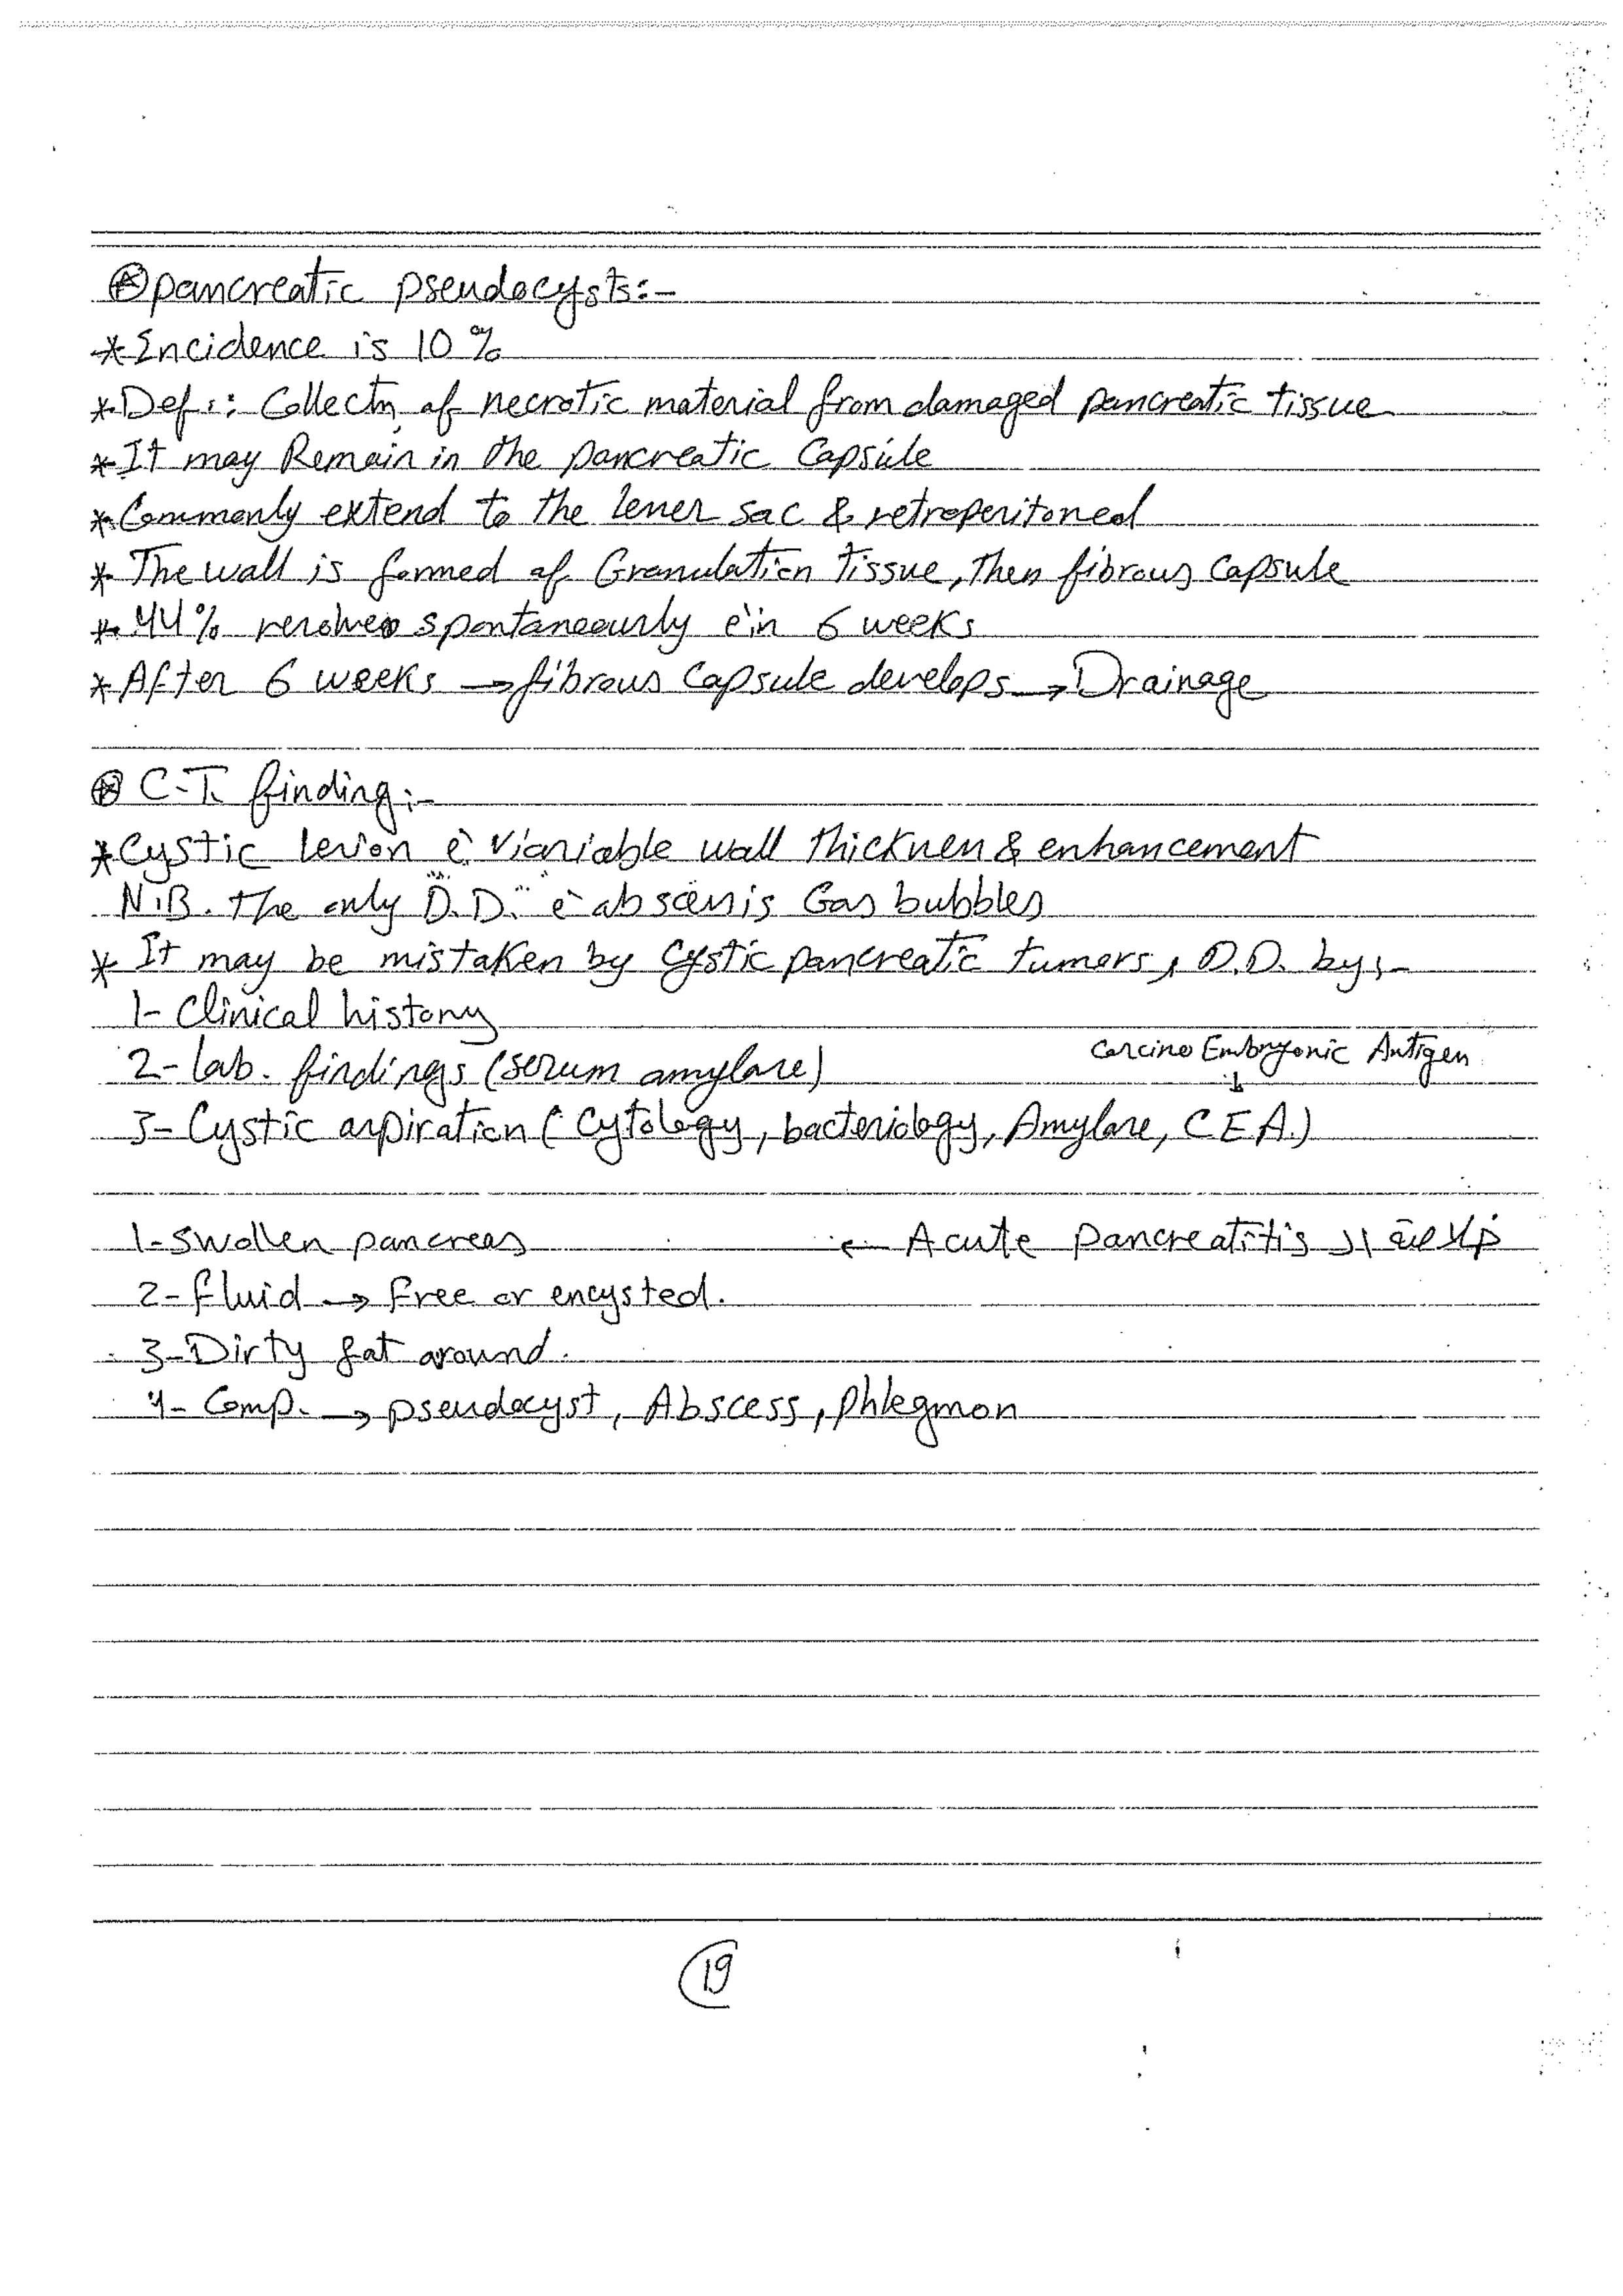 ⊛ pancreatic pseudocysts:-
* Incidence is 10 %
* Def.: Collectn, of necrotic material from damaged pancreatic tissue
* It may Remain in the pancreatic Capsule
* Commonly extend to the lesser sac & retroperitoneal
* The wall is formed of Granulation tissue, then fibrous capsule
* 44% resolves spontaneously è in 6 weeks
* After 6 weeks → fibrous capsule develops → Drainage
⊛ C.T. finding:-
* Cystic lesion è Variable wall thickness & enhancement
N.B. The only "D.D." è absces is Gas bubbles
* It may be mistaken by Cystic pancreatic tumors, D.D. by:-
1- Clinical history
2- lab. findings (serum amylase)
Carcino Embryonic Antigen
↓
3- Cystic aspiration (Cytology, bacteriology, Amylase, C E A.)
خلاصة ال Acute pancreatitis ←
1- Swollen pancreas
2- fluid → Free or encysted.
3- Dirty fat around.
4- Comp. → pseudocyst, Abscess, phlegmon
19